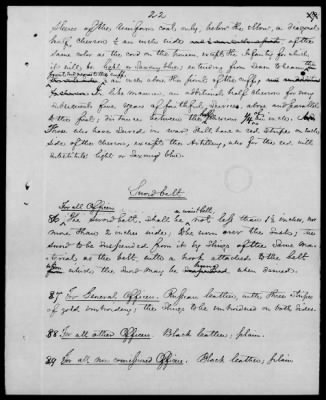 22
Sleeves of the Uniform coat, only, below the elbow, a diagonal
half chevron ½ an inch wide of the
same color as the cord on the trousers, except the Infantry, for which
it will be light or Saxony blue, extending from seam to seam, the
front
½ an inch above the point of the cuff,
In like manner, an additional half chevron for every
subsequent five years of faithful service, above and parallel
to the first; distance between the chevrons ¼ inch.
Those who have served in war shall have a red stripe on each
side of the chevron, except the Artillery, who for the red will
substitute light or Saxony blue.
Sword belt
For all Officers
a waist belt,
86 The Sword belt, shall be not less than 1½ inches, nor
more than 2 inches wide; to be worn over the Sash; the
sword to be suspended from it by slings of the same ma-
terial as the belt, with a hook attached to the belt
which the sword may be when desired.
87 For General Officers. Russian leather, with three stripes
of gold embroidery; the slings to be embroidered on both sides.
88 For all other Officers. Black leather, plain.
89 For all non commissioned Officers. Black leather, plain